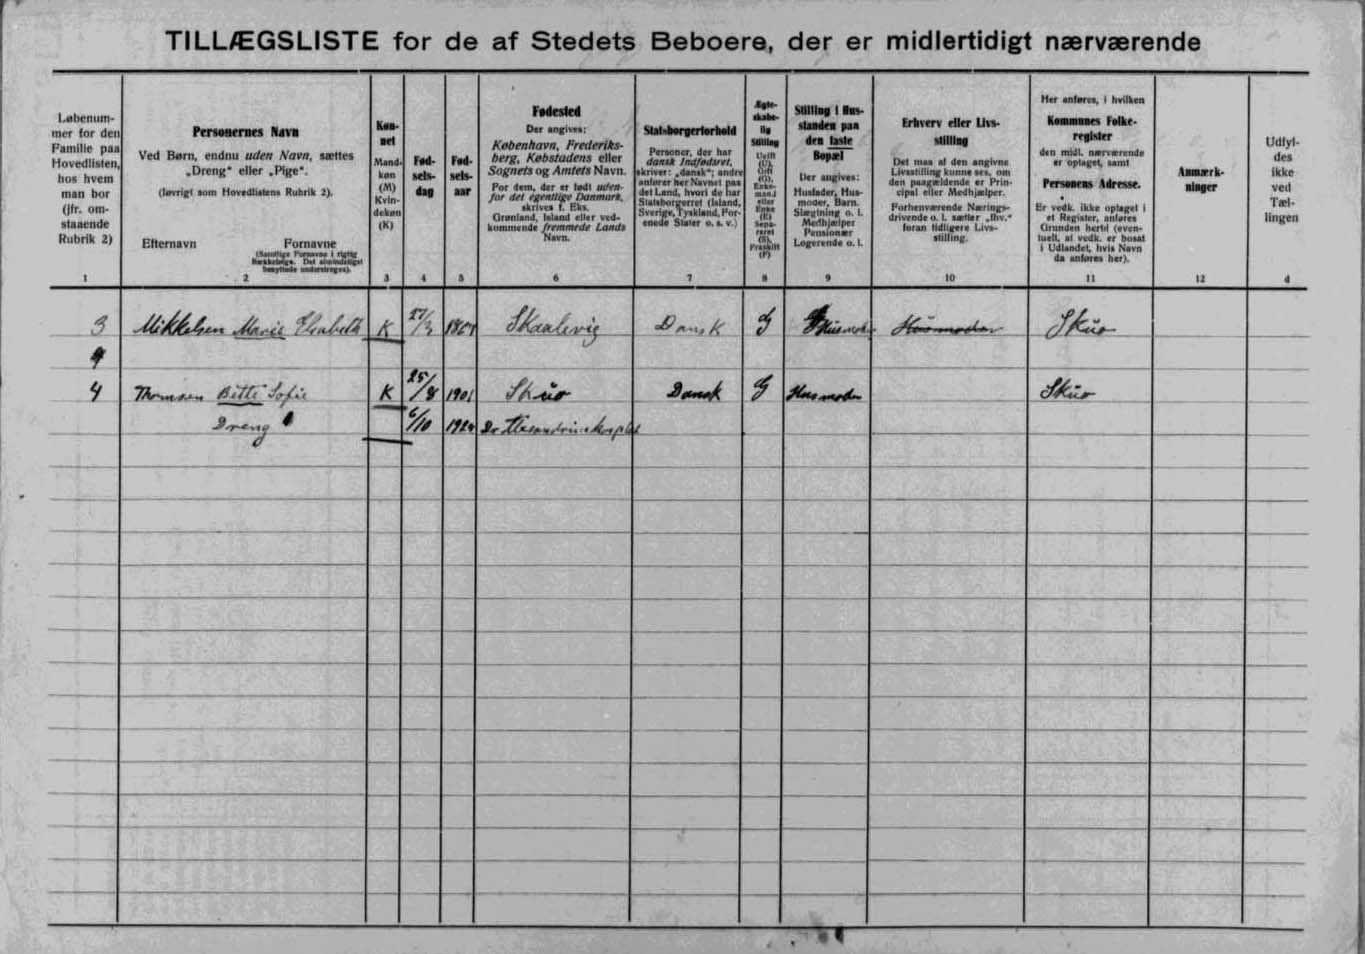 TILLÆGSLISTE for de af Stedets Beboere, der er midlertidigt nærværende
Løbenum-
mer for den
Familie paa
Hovedlisten,
hos hvem
man bor
(jfr. om-
staaende
Rubrik 2)
1
Personernes Navn
Ved Børn, endnu uden Navn, sættes
„Dreng“ eller „Pige“.
(Iøvrigt som Hovedlistens Rubrik 2).
Efternavn Fornavne
(Samtlige Fornavne i rigtig
Rækkefølge. Det almindeligst
benyttede understreges).
2
Køn-
net
Mand-
køn
(M)
Kvin-
dekøn
(K)
3
Fød-
sels-
dag
4
Fød-
sels-
aar
5
Fødested
Der angives:
København, Frederiks-
berg, Købstadens eller
Sognets og Amtets Navn.
For dem, der er født uden-
for det egentlige Danmark,
skrives f. Eks.
Grønland, Island eller ved-
kommende fremmede Lands
Navn.
6
Statsborgerforhold
Personer, der har
dansk Indfødsret,
skriver: „dansk“; andre
anfører her Navnet paa
det Land, hvori de har
Statsborgerret (Island,
Sverige, Tyskland, For-
enede Stater o. s. v.)
7
Ægte-
skabe-
lig
Stilling
Ugift
(U),
Gift
(G),
Enke-
mand
eller
Enke
(E)
Sepa-
reret
(S),
Fraskilt
(F)
8
Stilling i Hus-
standen paa
den faste
Bopæl
Der angives:
Husfader, Hus-
moder, Barn.
Slægtning o. l.
Medhjælper
Pensionær
Logerende o. l.
9
Erhverv eller Livs-
stilling
Det maa af den angivne
Livsstilling kunne ses, om
den paagældende er Prin-
cipal eller Medhjælper.
Forhenværende Nærings-
drivende o. l. sætter „fhv.“
foran tidligere Livs-
stilling.
10
Her anføres, i hvilken
Kommunes Folke-
register
den midl. nærværende
er optaget, samt
Personens Adresse.
Er vedk. ikke optaget i
et Register, anføres
Grunden hertil (even-
tuelt, at vedk. er bosat
i Udlandet, hvis Navn
da anføres her).
11
Anmærk-
ninger
12
Udfyl-
des
ikke
ved
Tæl-
lingen
d
3 Mikkelsen Marie Elsabeth K 27/3 Skaalevig Dansk G Husmoder Husmoder Skuo
4 Thomsen Bitte Sofie K 25/8 1901 Skuo Dansk G Husmoder Skuo
Dreng 6/10 Dr